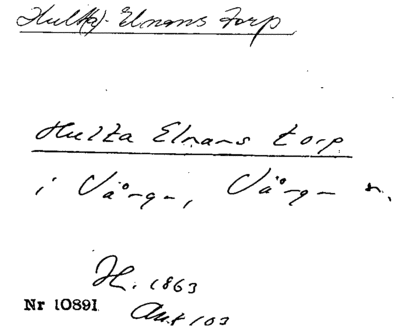 Hult(a) Elnans Torp
Hulta Elnans torp
i Vånga, Vånga sn.
H. 1863
Nr 10891
Ant 103